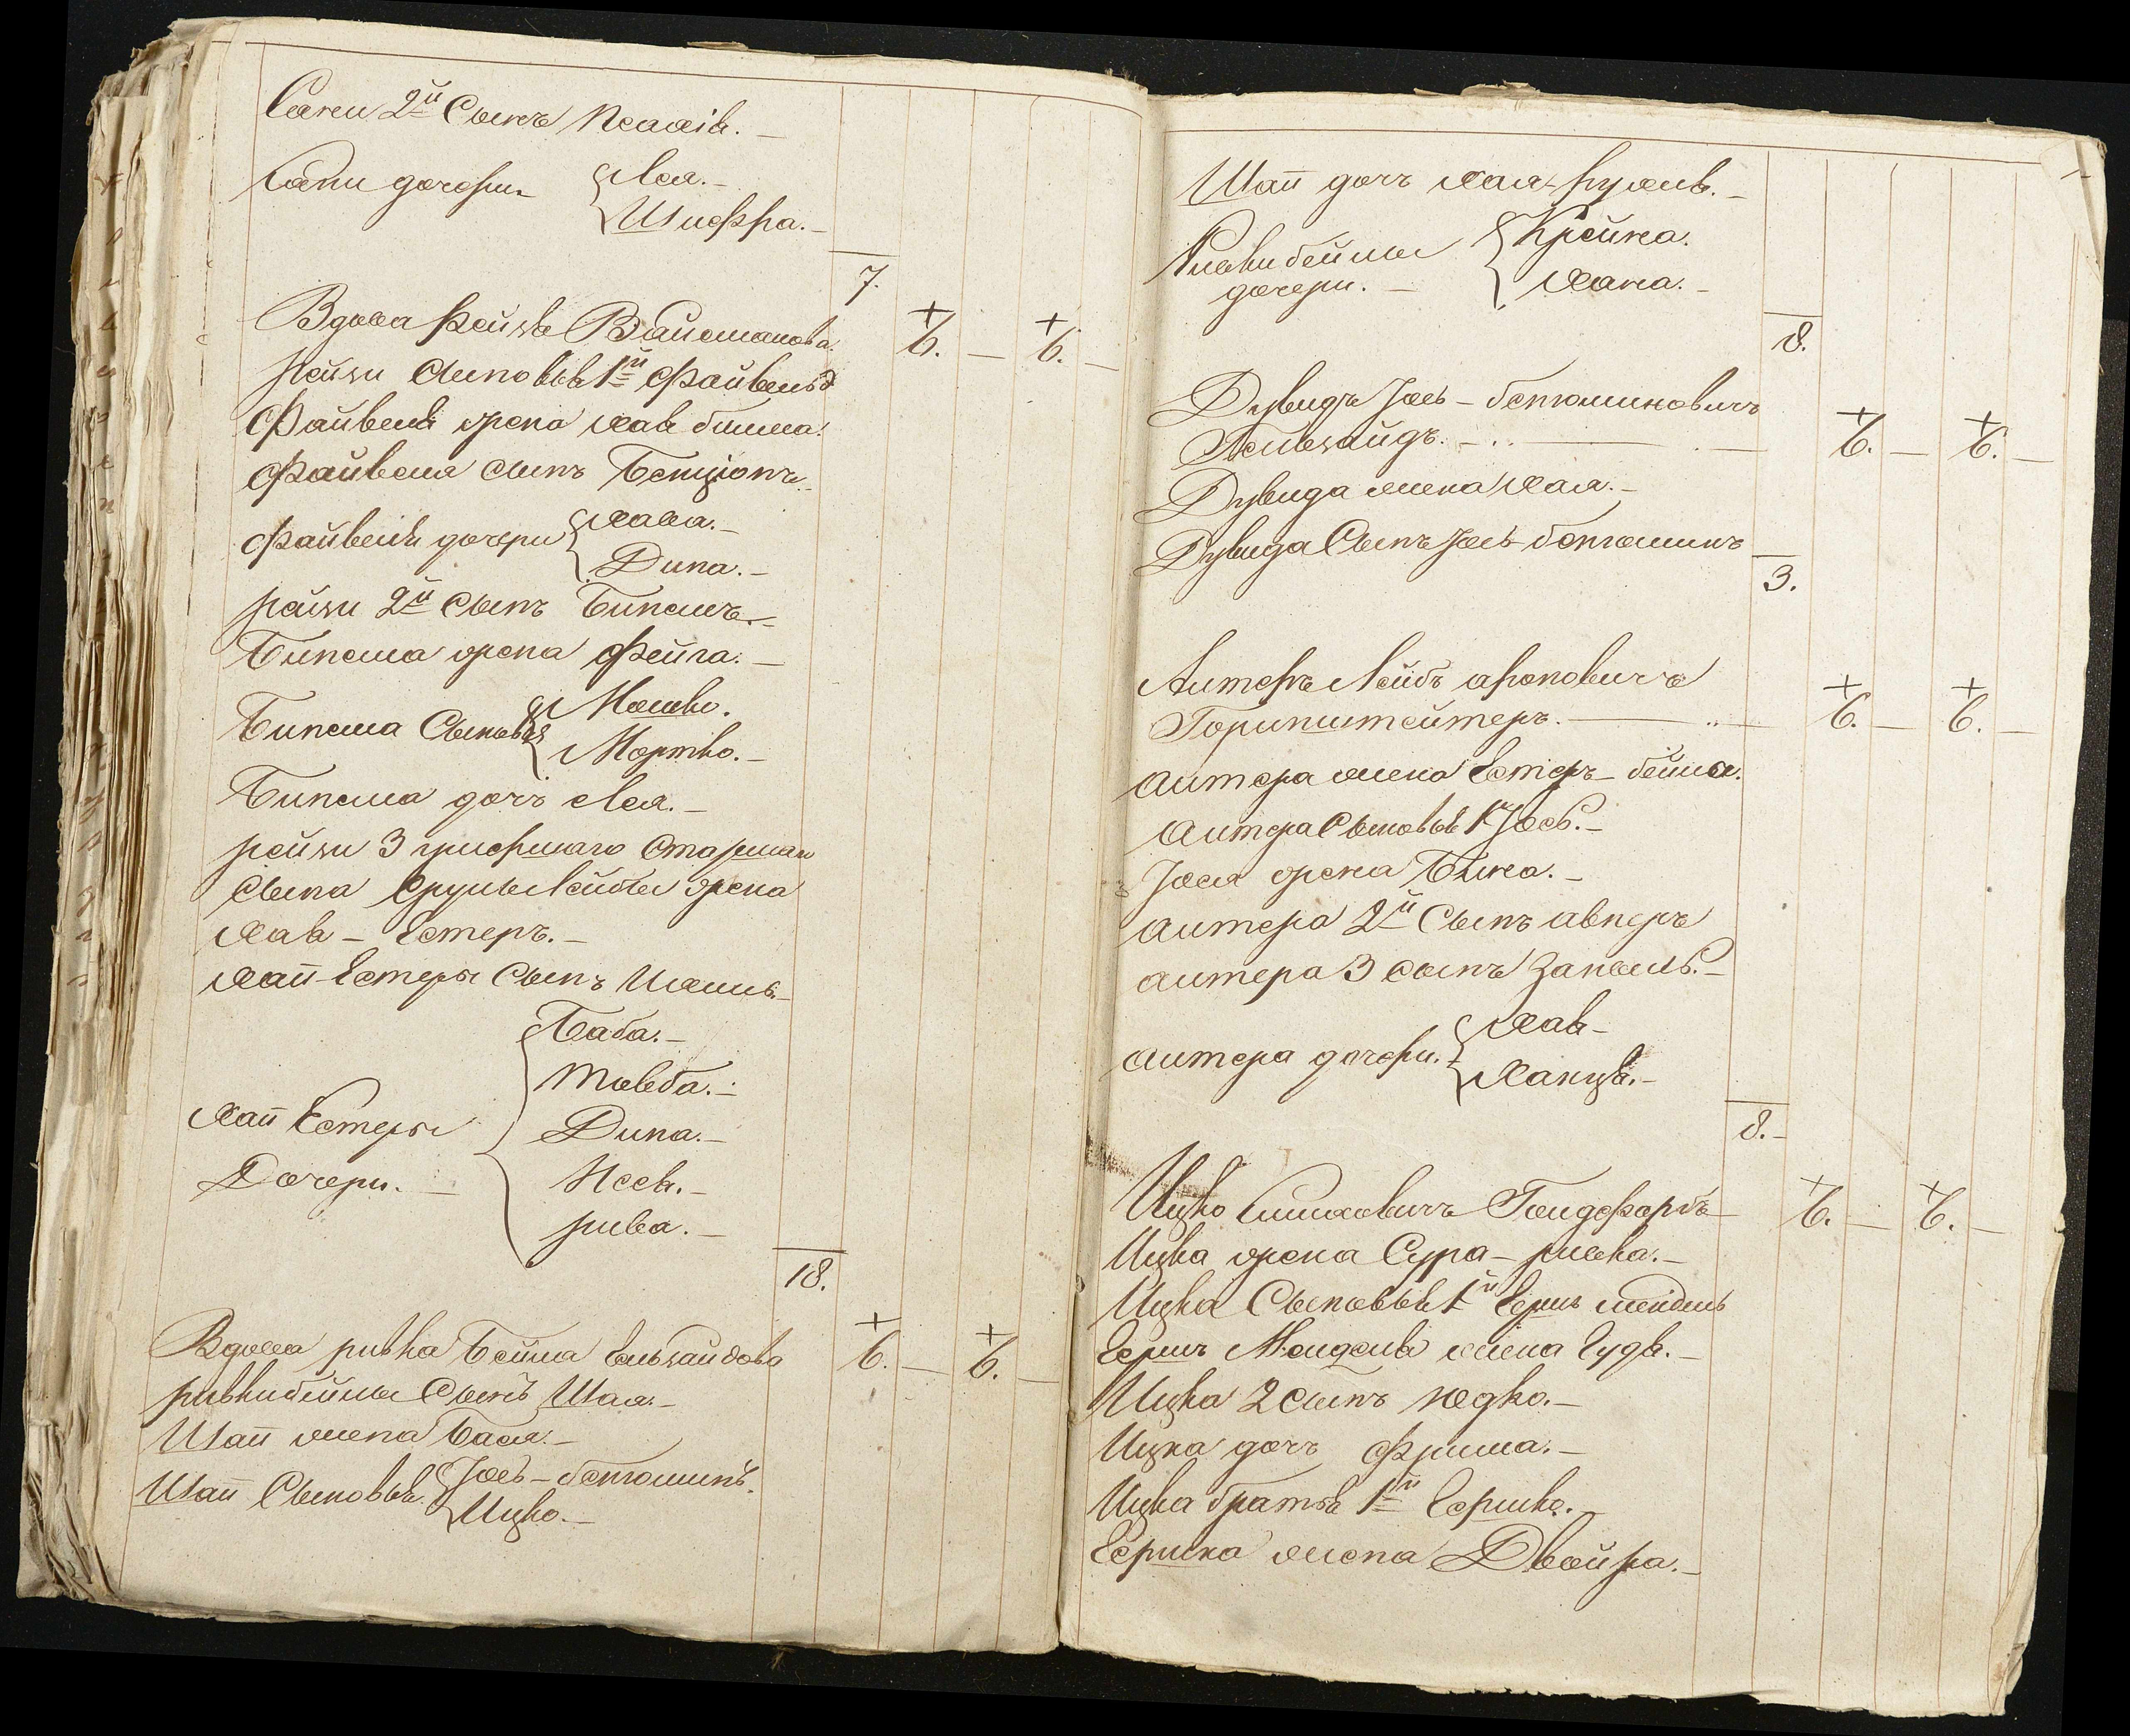 Сани 2й Сынъ Исаакъ. —
Сани дочери { Лея. —
Шифра. —
7.
Вдова Рейзя Вайсманова. + 6. — + 6. —
Рейзи Сыновья 1й Файвель
Файвеля жена Хая бейла.
Файвеля сынъ Бенціонъ.
Файвеля дочери { Хава. —
Дина. —
рейзи 2й Сынъ Бинемъ. —
Бинема жена Фейга. —
Бинема Сыновья { Мошко.
Мортко. —
Бинема дочь Лея. —
рейзи 3 умершаго Старшаго
Сына Сруль Лейбы жена
Хая — Естеръ. —
Хаи Естеры Сынъ Ихиль. —
Хаи Естеры
Дочери. — { Баба. —
Товба. —
Дина. —
Неся. —
рива. —
18.
Вдова ривка Бейла Гельзайдова + 6. — + 6. —
ривки бейлы Сынъ Шая. —
Шаи жена Бася. —
Шаи Сыновья { Іось — бенюминъ.
Ицко. —
Шаи дочь Хая — рухля. —
Ривки бейлы
дочери. — { Крейна.
Хана. —
8.
Дувидъ Іось — бенюминовичъ
Гельзайдъ. — + 6. — + 6. —
Дувида жена Хая. —
Дувида Сынъ Іось бенюминъ
3.
Алтеръ Лейбъ ароновичъ
Горинштейтеръ. — + 6. — + 6. —
алтера жена Естеръ — бейла.
алтера Сыновья 1й Іось. —
Іося жена Бина. —
алтера 2й Сынъ авнеръ
алтера 3 сынъ Занвель. —
алтера дочери. { Хая —
Ханця. —
8. —
Ицко Симховичъ Гольдфарбъ — + 6. — + 6. —
Ицка жена Сура — ривка. —
Ицка Сыновья 1й Гершъ мендель
Гершъ Менделя жена Гудя. —
Ицка 2 сынъ Юдко. —
Ицка дочь Фрима. —
Ицка братья 1й Гершко. —
Гершка жена Двойра. —